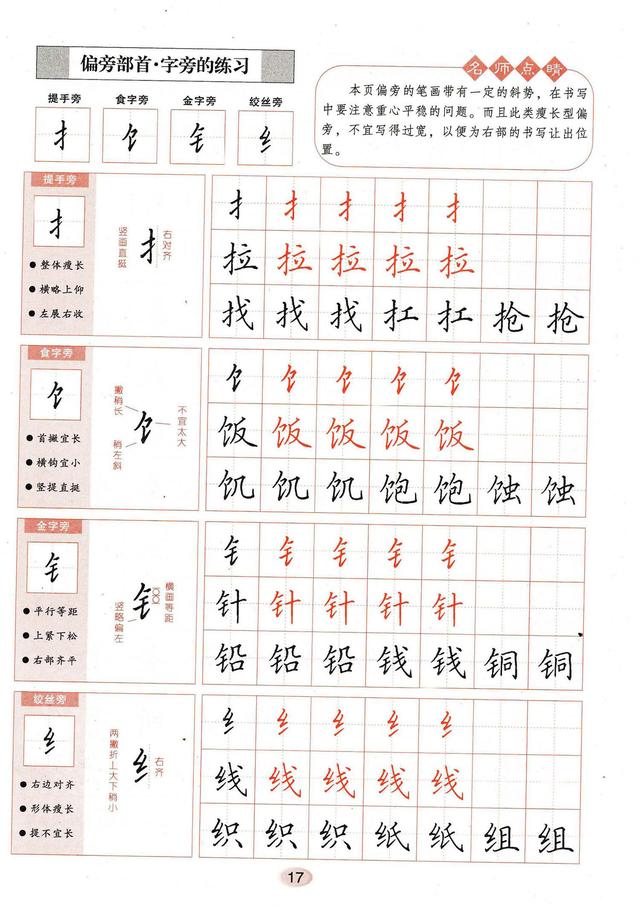 偏旁部首·字旁的练习
名师点睛
本页偏旁的笔画带有一定的斜势，在书写
中要注意重心平稳的问题。而且此类瘦长型偏
旁，不宜写得过宽，以便为右部的书写让出位
置。
提手旁 食字旁 金字旁 绞丝旁
扌 饣 钅 纟
提手旁
扌
● 整体瘦长
● 横略上仰
● 左展右收
竖画直挺
扌
右对齐
扌 扌 扌 扌 扌
拉 拉 拉 拉 拉
找 找 找 扛 扛 抢 抢
食字旁
饣
● 首撇宜长
● 横钩宜小
● 竖提直挺
撇稍长
稍左斜
饣
不宜太大
饣 饣 饣 饣 饣
饭 饭 饭 饭 饭
饥 饥 饥 饱 饱 蚀 蚀
金字旁
钅
● 平行等距
● 上紧下松
● 右部齐平
竖略偏左
钅
横画等距
钅 钅 钅 钅 钅
针 针 针 针 针
铅 铅 铅 钱 钱 铜 铜
绞丝旁
纟
● 右边对齐
● 形体瘦长
● 提不宜长
两撇折上大下稍小
纟
右齐
纟 纟 纟 纟 纟
线 线 线 线 线
织 织 织 纸 纸 组 组
17